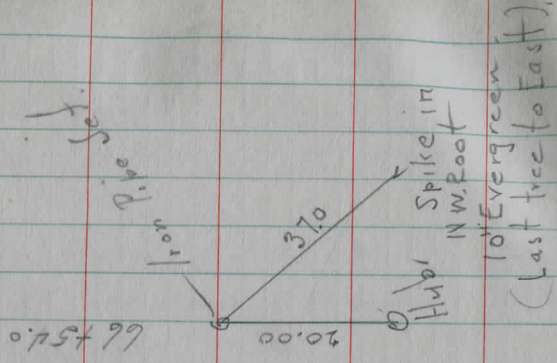 Iron Pipe Set.
66+54.0
37.0
20.00
Hub
Spike in
N.W. Root
10" Evergreen
(Last tree to East).